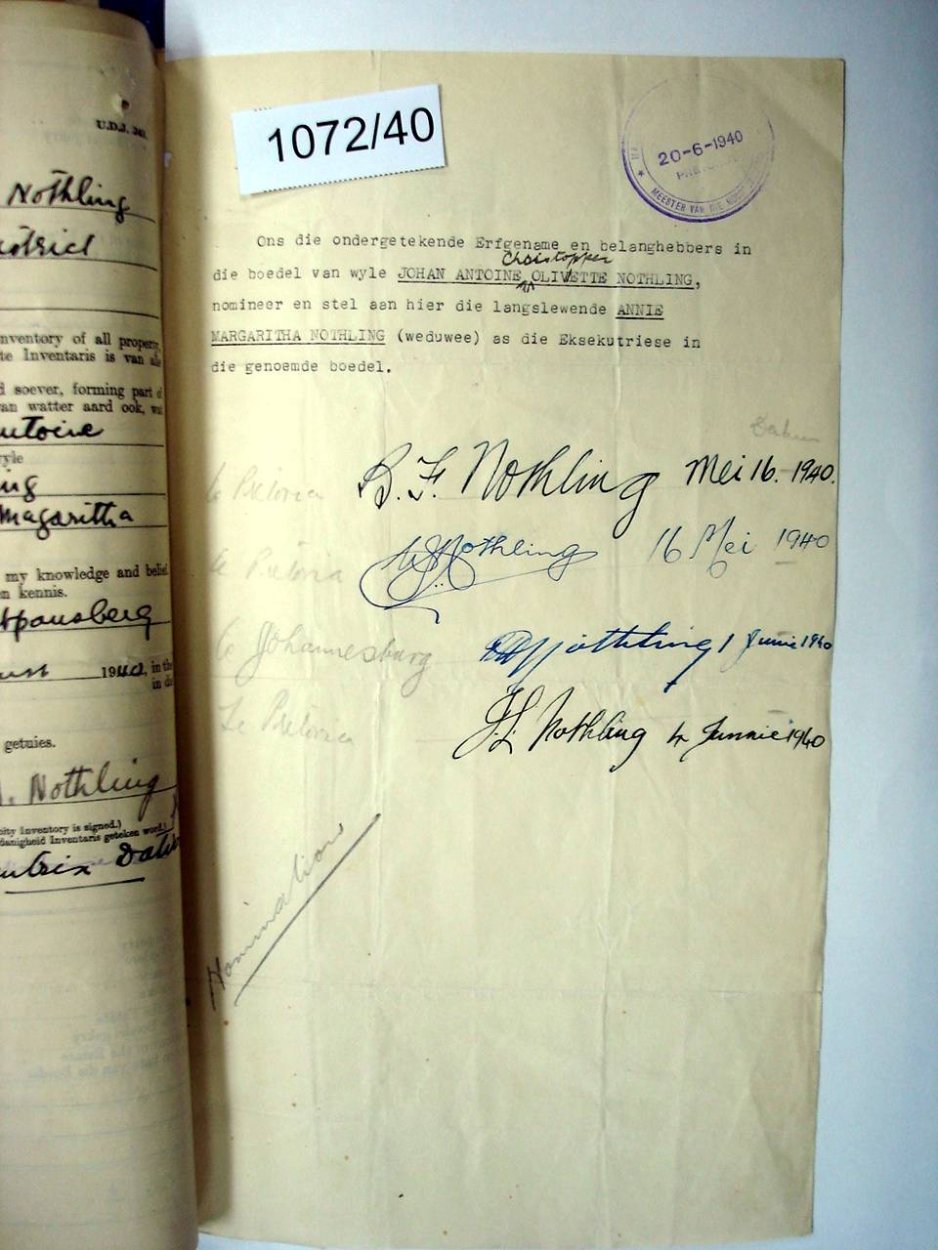 U.D.J.
Nothling
nventory of all property
te Inventaris is van
d soever, forming part
an watter aard ook,
utoine
yle
ng
Magaritha
my knowledge and
n kennis.
in the
getuies.
Nothling
city Inventory is signed.)
danigheid Inventaris geteken word.)
1072/40
20-6-1940
MEESTER VAN DIE
Ons die ondergetekende Erfgename en belanghebbers in
Christopher
die boedel van wyle JOHAN ANTOINE OLIVETTE NOTHLING,
nomineer en stel aan hier die langslewende ANNIE
MARGARITHA NOTHLING (weduwee) as die Eksekutriese in
die genoemde boedel.
Datum
te Pretoria B. F. Nothling Mei 16. 1940.
te Pretoria Nothling 16 Mei 1940
te Johannesburg Nothling 1 Junie 1940
Te Pretoria J.L. Nothling 4 Junnie 1940
Nominations